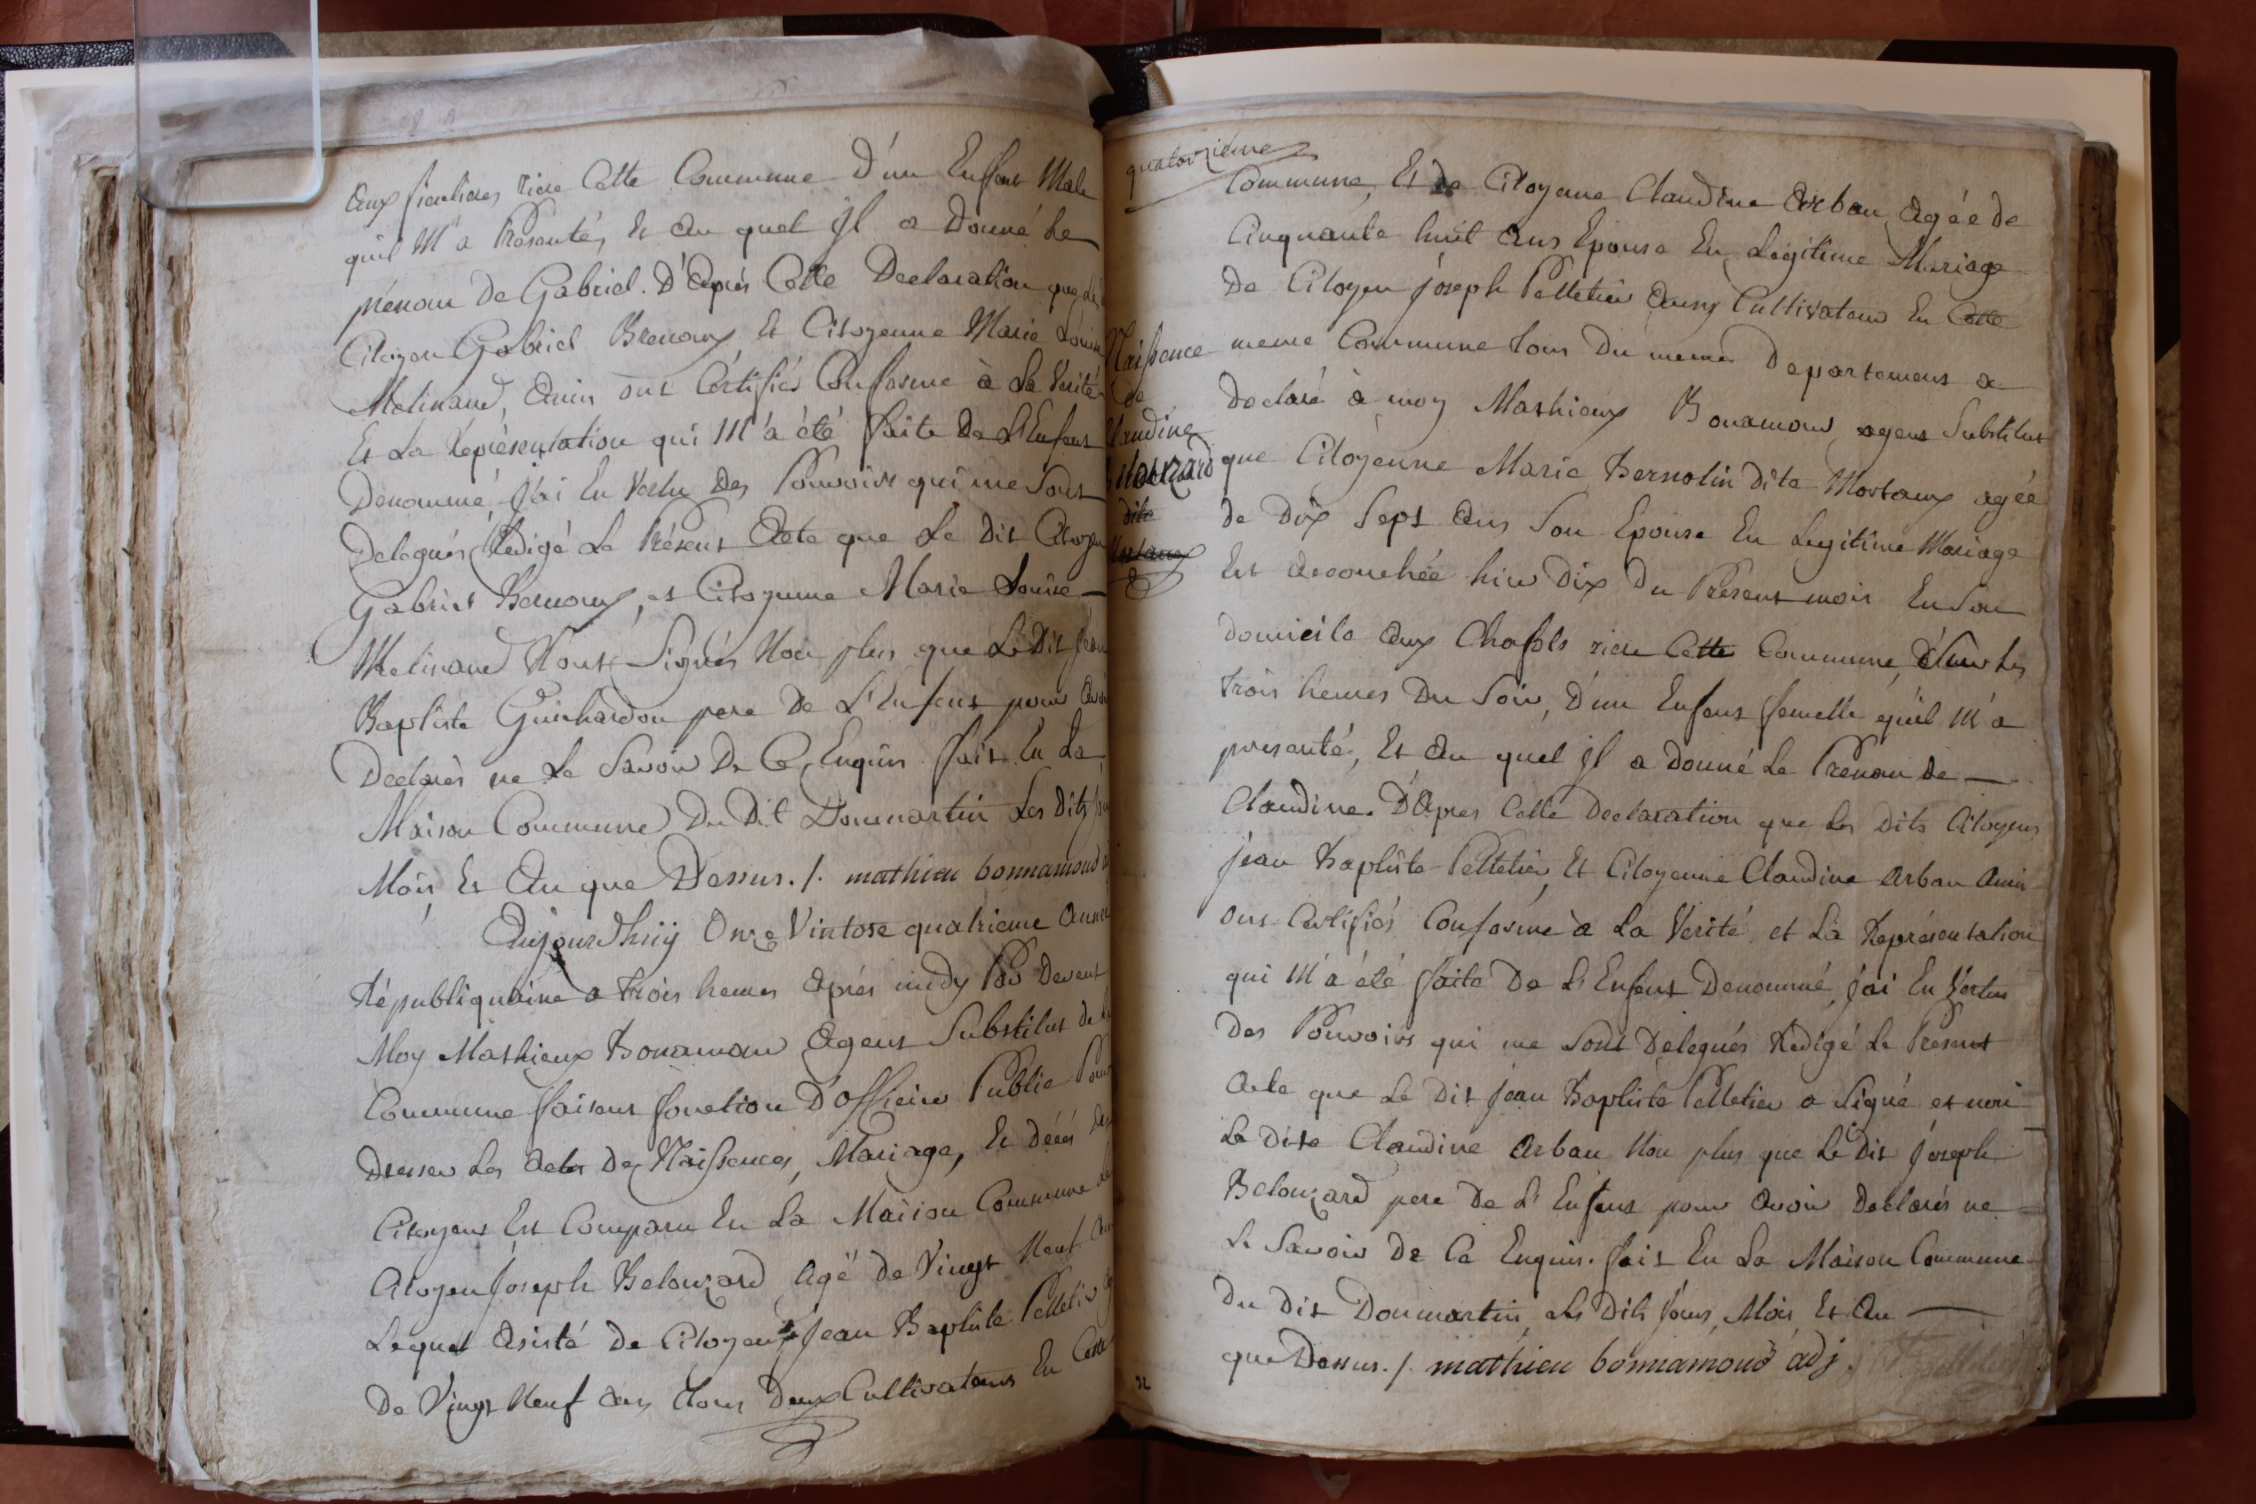 aux rière Cette Commune D'un Enfant Male
quil M'a Présentés, Et Au quel Jl a Donné Le
prénom De Gabriel. D'Après Cette Declaration que
Citoyen Gabriel Brenoux Et Citoyenne Marie Louise
Molinand, Amis ont Certifiés Conforme à La Verité
Et La Représentation qui M'a été faite De L'Enfant
Denommé, J'ai En Vertu Des Pouvoirs qui me Sont
Delegués Redigé Le Présent Acte que Le Dit Citoyen
Gabriel Bernoux, et Citoyenne Marie Louise
Molinand N'ont Signés Non plus que Le Dit Jean
Baptiste Guinhardon pere De L'Enfant pour Avoir
Declarés ne Le Savoir De Ce Enquis. fait En La
Maison Commune Du Dit Dommartin Les Dits
Mois Et An que Dessus ./. mathieu bonnamoud
Aujourdhuÿ Onze Vintose quatrieme Année
Républiquaine a trois heures après midy Par Devent
Moy Mathieux Bonamour Agent Substitut de
Commune faisant fonction D'Officier Public Pour
Dresser Les Actes De Naissences, Mariage, Et Décés
Citoyens Est Comparu En La Maison Commune
Citoyen Joseph Belouzard Agé De Vingt Neuf
Lequel Asisté De Citoyen Jean Baptiste Pelletier
De Vingt Neuf Ans tous Deux Cultivateurs En Cette
quatorzieme
Commune, Et De Citoyene Claudine Arban Agée De
Cinquante huit Ans Epouse En Légitime Mariage
De Citoyen Joseph Pelletier Aussy Cultivateur En Cette
Naissence
de
Claudine
Belouzard
dite
Mortaux
meme Commune tous Du meme Departement a
Declaré à moy Mathieux Bonamour agent Substitut
que Citoyenne Marie Bernolin Dite Mortaux agée
de Dix Sept Ans Son Epouse En Legitime Mariage
Est Accouchée hier Dix Du Present mois En Son
domicile Aux Chapols rière Cette Commune, Sur Les
trois heures Du Soir, D'un Enfant femelle qu'il M'a
presenté, Et Au quel Jl a Donné Le Prenom De
Claudine. D'Apres Cette Declaration que Les Dits Citoyens
Jean Baptiste Pelletier, Et Citoyenne Claudine Arban Amis
Ont Certifiés Conforme à La Verité et La Représentation
qui M'a été faite De L'Enfant Denommé, J'ai En Vertu
Des Pouvoirs qui me Sont Delegués Redigé Le Present
Acte que Le Dit Jean Baptiste Pelletier a Signé et non
La Dite Claudine Arban Non plus que Le Dit Joseph
Belouzard pere De L'Enfant pour Avoir Declarés ne
Le Savoir De Ce Enquis. fait En La Maison Commune
Du Dit Dommartin, Les Dits Jours, Mois Et An
que Dessus ./. mathieu bonnamoud adj